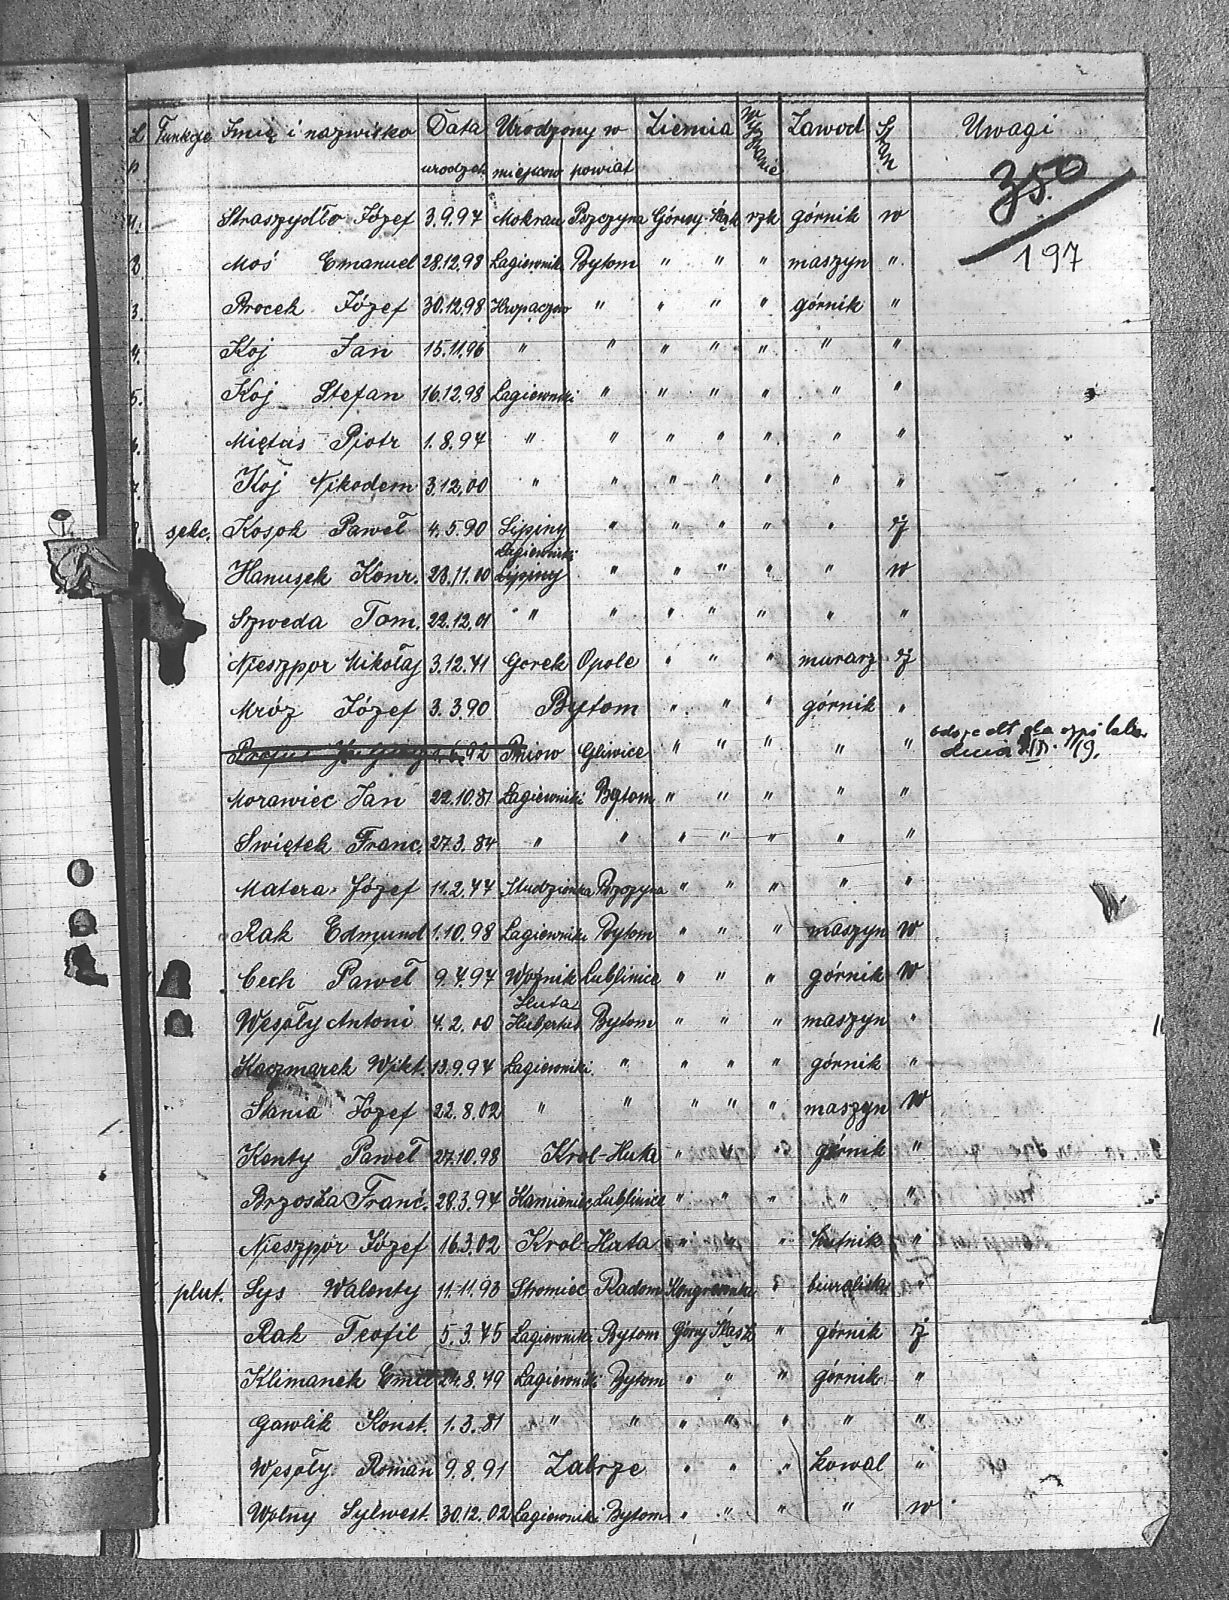 L Funkcje Imię i nazwisko Data Urodzony w Ziemia Wyznanie Zawod Stan Uwagi
p. urodzek miejscow powiat
350
197
1. Straszydło Józef 3.9.94 Mokrau Pszczyna Górny-Śląsk rzk górnik w
2. Moś Emanuel 28.12.98 Łagiewnik Bytom " " " maszyn "
3. Procek Józef 30.12.98 Hropaczow " " " " górnik "
4. Koj Jan 15.11.96 " " " " " " "
5. Koj Stefan 16.12.98 Łagiewniki " " " " " "
6. Miętus Piotr 1.8.94 " " " " " " "
7. Koj Nikodem 3.12.00 " " " " " " "
8. sekc. Kosok Paweł 4.5.90 Lipiny " " " " " ż
Łagiewniki
Hanusek Konr. 23.11.00 Lipiny " " " " " w
Szweda Tom. 22.12.01 " " " " " " "
Nieszpor Mikołaj 3.12.71 Gorek Opole " " " murarz ż
Mróz Józef 3.3.90 Bytom " " " górnik "
6.92 Pniow Gliwice " " " " " odszedł do szpitala
dnia
Morawiec Jan 22.10.81 Łagiewniki Bytom " " " " "
Swiętek Franc. 27.3.84 " " " " " " "
Matera Józef 11.2.77 Studzienka Pszczyna " " " " "
Rak Edmund 1.10.98 Łagiewniki Bytom " " " maszyn w
Cech Paweł 9.4.97 Woźnik Lublinice " " " górnik w
Huta
Wesoły Antoni 4.2.00 Hubertus Bytom " " " maszyn "
Kaczmarek Wikt. 13.9.94 Łagiewniki " " " " górnik "
Stania Józef 22.8.02 " " " " " maszyn w
Kenty Paweł 27.10.98 Krol-Huta " " " górnik "
Brzoska Franc. 28.3.94 Kamieniec Lublinice " " " " "
Nieszpór Józef 16.3.02 Krol-Huta " " " hutnik "
plut. Lys Walenty 11.11.93 Stromiec Radom Kongresowka " biuralista "
Rak Teofil 5.3.75 Łagiewniki Bytom Górny Śląsk " górnik ż
Klimanek Emil 24.8.79 Łagiewniki Bytom " " " górnik "
Gawlik Konst. 1.3.81 " " " " " " "
Wesoły Roman 9.8.91 Zabrze " " " kowal "
Wolny Sylwest. 30.12.02 Łagiewniki Bytom " " " " w